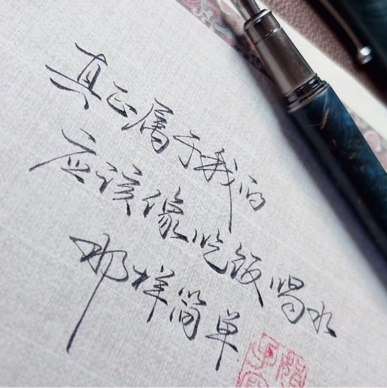 真正属于我的
应该像吃饭喝水
那样简单